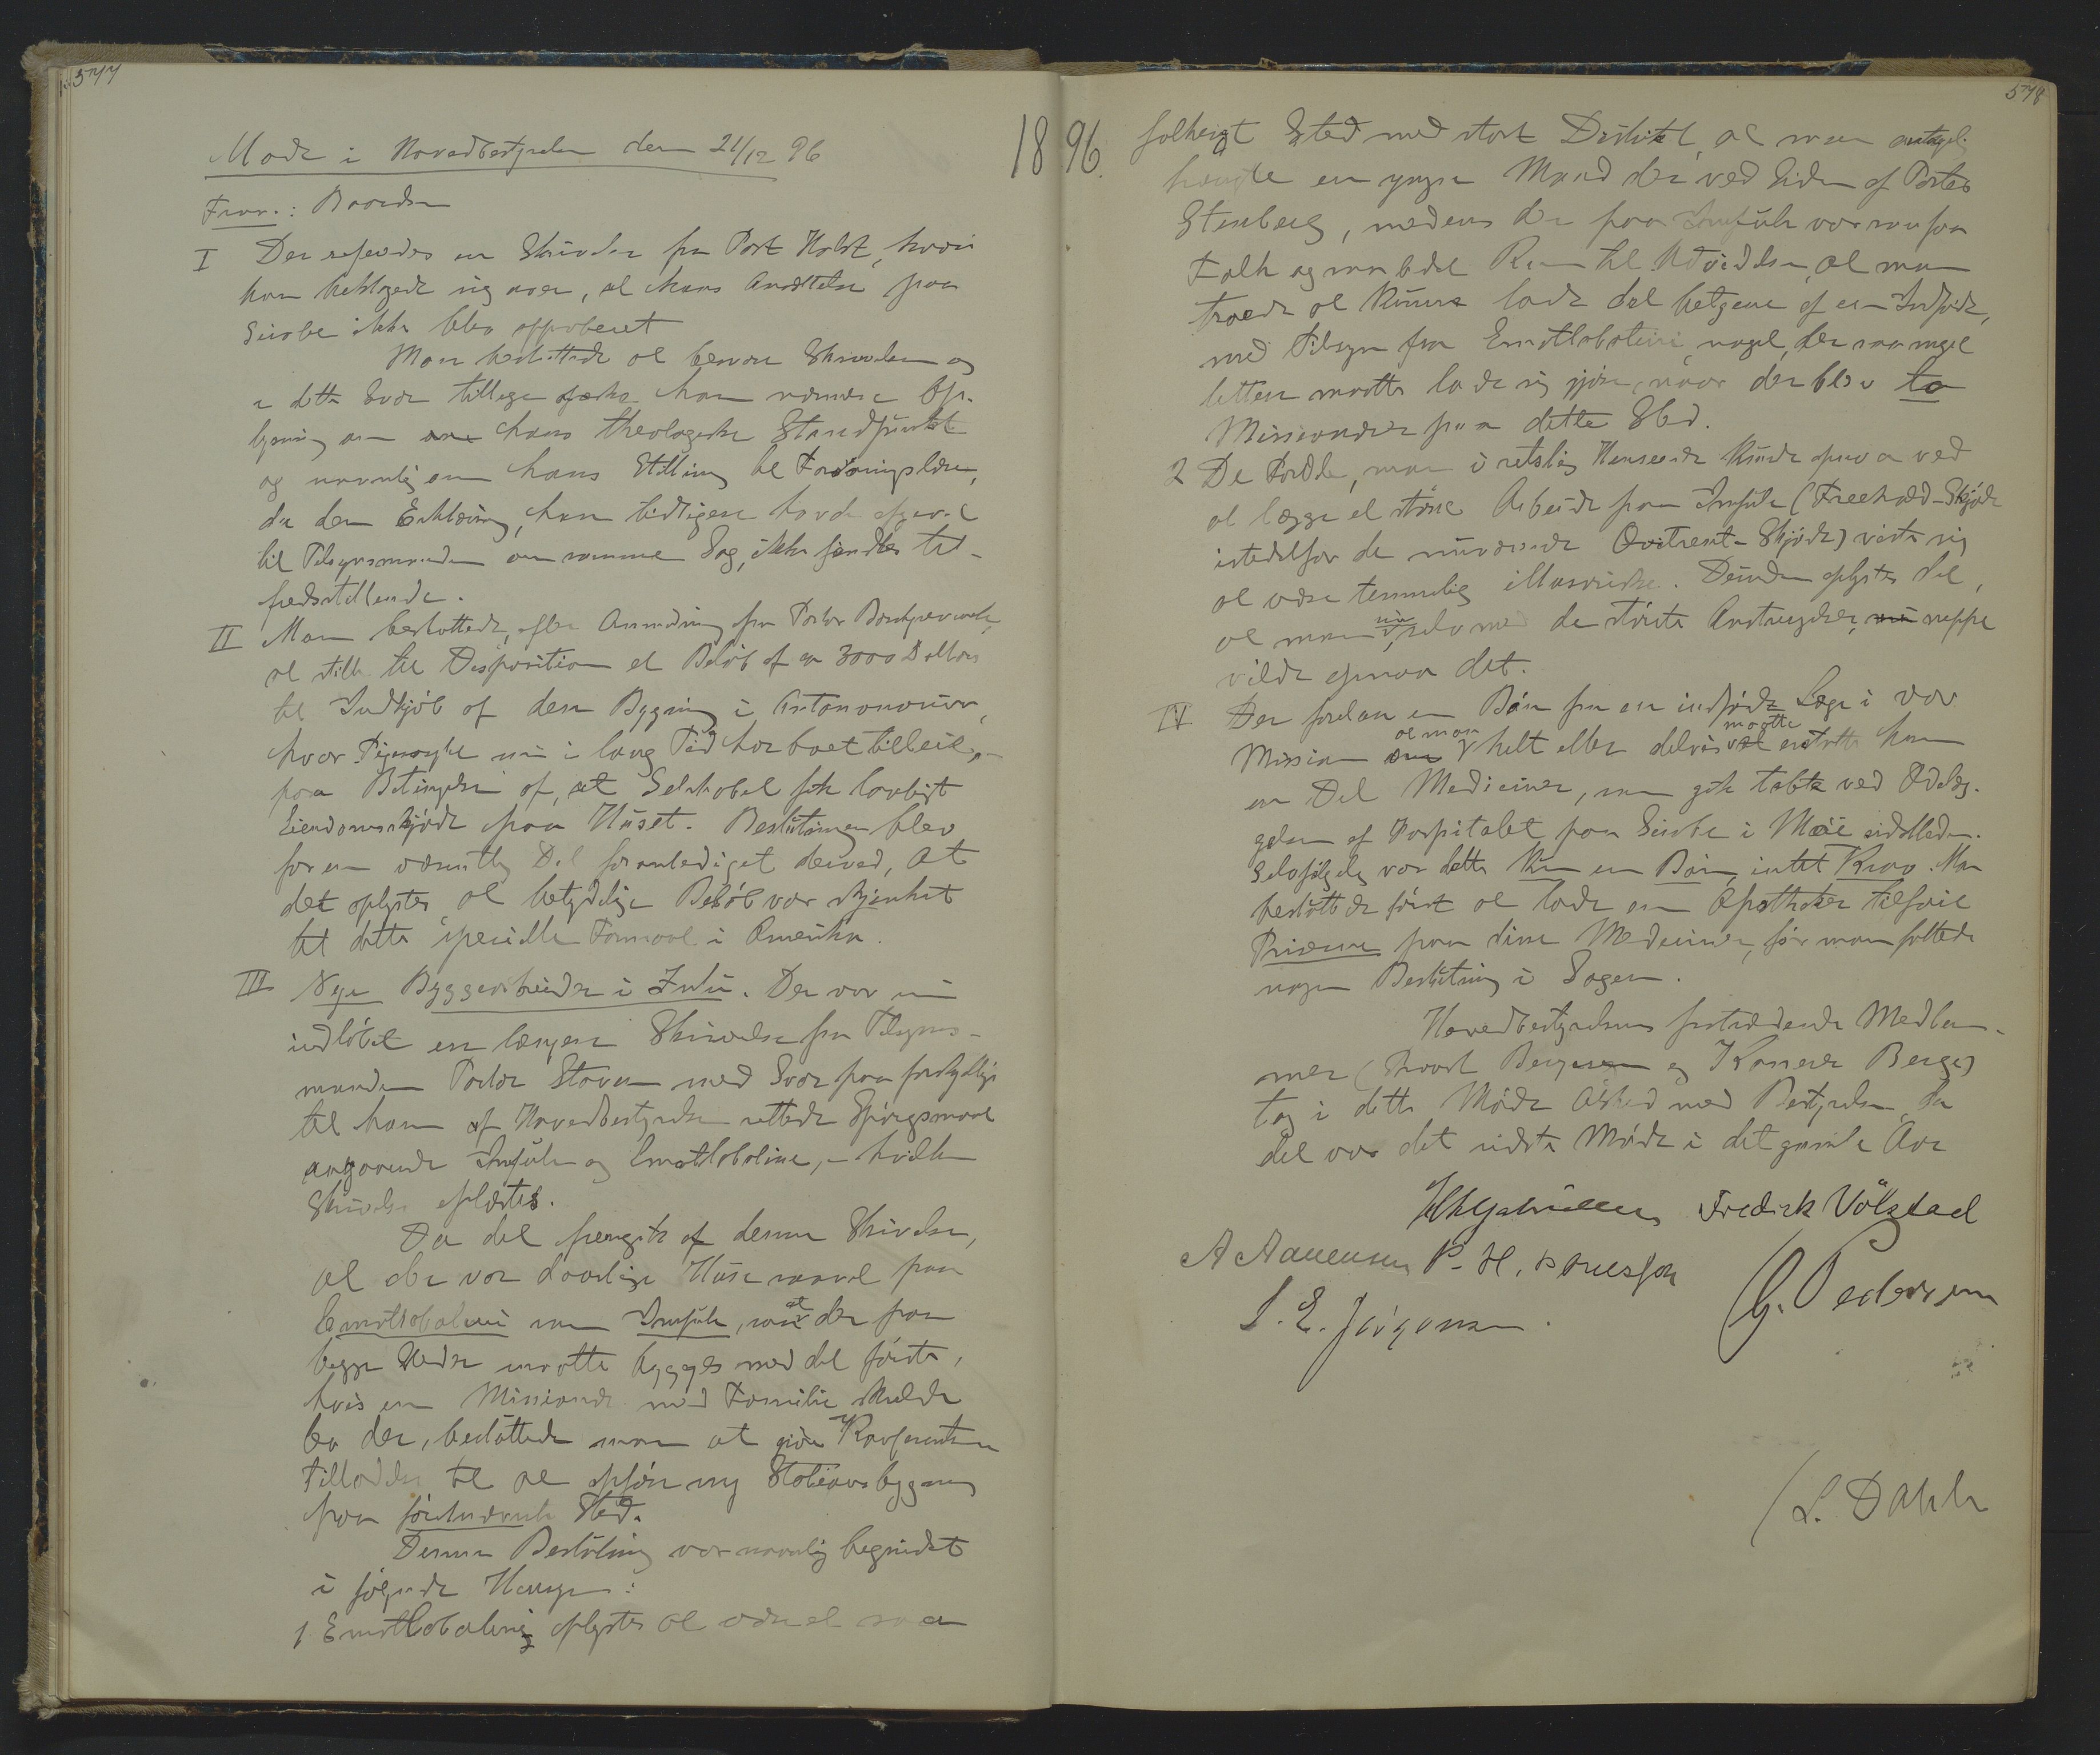 577
Møde i Hovedbestyrelsen den 21/12 96
18
Frav.: Baardsen
I Der refereredes en Skrivelse fra Past Holst, hvori
han beklagede sig over, at hans Ansættelse paa
Sirabe ikke blev approberet
Man besluttede at besvare Skrivelsen og
i dette Svar tillige æske ham nærmere Op-
lysning om hans theologiske Standpunkt
og navnlig om hans Stilling til Forsoningslæren,
da den Erklæring, han tidligere havde afgivet
til Tilsynsmanden om samme Sag, ikke fandtes til-
fredsstillende.
II Man besluttede, efter Anmodning fra Pastor Borchgrevink,
at stille til Disposition et Beløb af ca 3000 Dollars
til Indkjøb af den Bygning i Antananarivo,
hvor Pigeasylet nu i lang Tid har boet tilleie,
paa Betingelse af, at Selskabet fik lovligt
Eiendomsskjøde paa Huset. Beslutningen blev
for en væsentlig Del foranlediget derved, at
det oplystes, at betydelige Beløb var skjænket
til dette specielle Formaal i Amerika.
III Nye Byggearbeider i Zulu. Der var nu
indløbet en længere Skrivelse fra Tilsyns-
manden Pastor Stavem med Svar paa forskjellige
til ham af Hovedbestyrelsen rettede Spørgsmaal
angaaende Imfule og Emothlobolini, - hvilken
Skrivelse oplæstes.
Da det fremgik af denne Skrivelse,
at der var daarlige Huse saavel paa
Emothlobolini som Imfule, saa at der paa
begge Steder maatte bygges med det første,
hvis en Missionær med Familie skulde
bo der, besluttede man at give Konferentsen
Tilladelse til at opføre ny Stationsbygning
paa førstnævnte Sted.
Denne Beslutning var navnlig begrundet
i følgende Hensyn:
1 Emothlobolini oplystes at være et saa
578
96.
folkerigt Sted med stort Distrikt, at man antagelig
trængte en yngre Mand der ved Siden af Pastor
Stenberg, medens der paa Imfule var saa faa
Folk og saa lidet Rum til Udvidelse, at man
troede at kunne lade det betjene af en Indfødt,
med Tilsyn fra Emothlobolini, noget, der saa meget
lettere maatte lade sig gjøre, naar der blev to
Missionærer paa dette Sted.
2 De Fordele, man i retslig Henseende kunde opnaa ved
at lægge et større Arbeide paa Imfule (Freehold-Skjøde
istedetfor de nuværende Quitrent-Skjøde) viste sig
at være temmelig illusoriske. Desuden oplystes det,
at man nu, selv med de største Anstrengelser, neppe
vilde opnaa det.
IV Der forelaa en Bøn fra en indfødt Læge i vor
Mission at man helt eller delvis maatte erstatte ham
en Del Mediciner, som gik tabte ved Ødelæg-
gelsen af Hospitalet paa Sirabe i Mai sidstleden.
Selvfølgelig var dette kun en Bøn, intet Krav. Man
besluttede først at lade en Apotheker tilføie
Priserne paa disse Mediciner, før man fattede
nogen Beslutning i Sagen.
Hovedbestyrelsens fratrædende Medlem-
mer (Provst Bergesen og Kasserer Berge)
tog i dette Møde Afsked med Bestyrelsen, da
det var det sidste Møde i det gamle Aar
Fredrik Völstad
A Aanensen P. H.
S. E. Jörgensen. G. Pedersen
L. Dahle